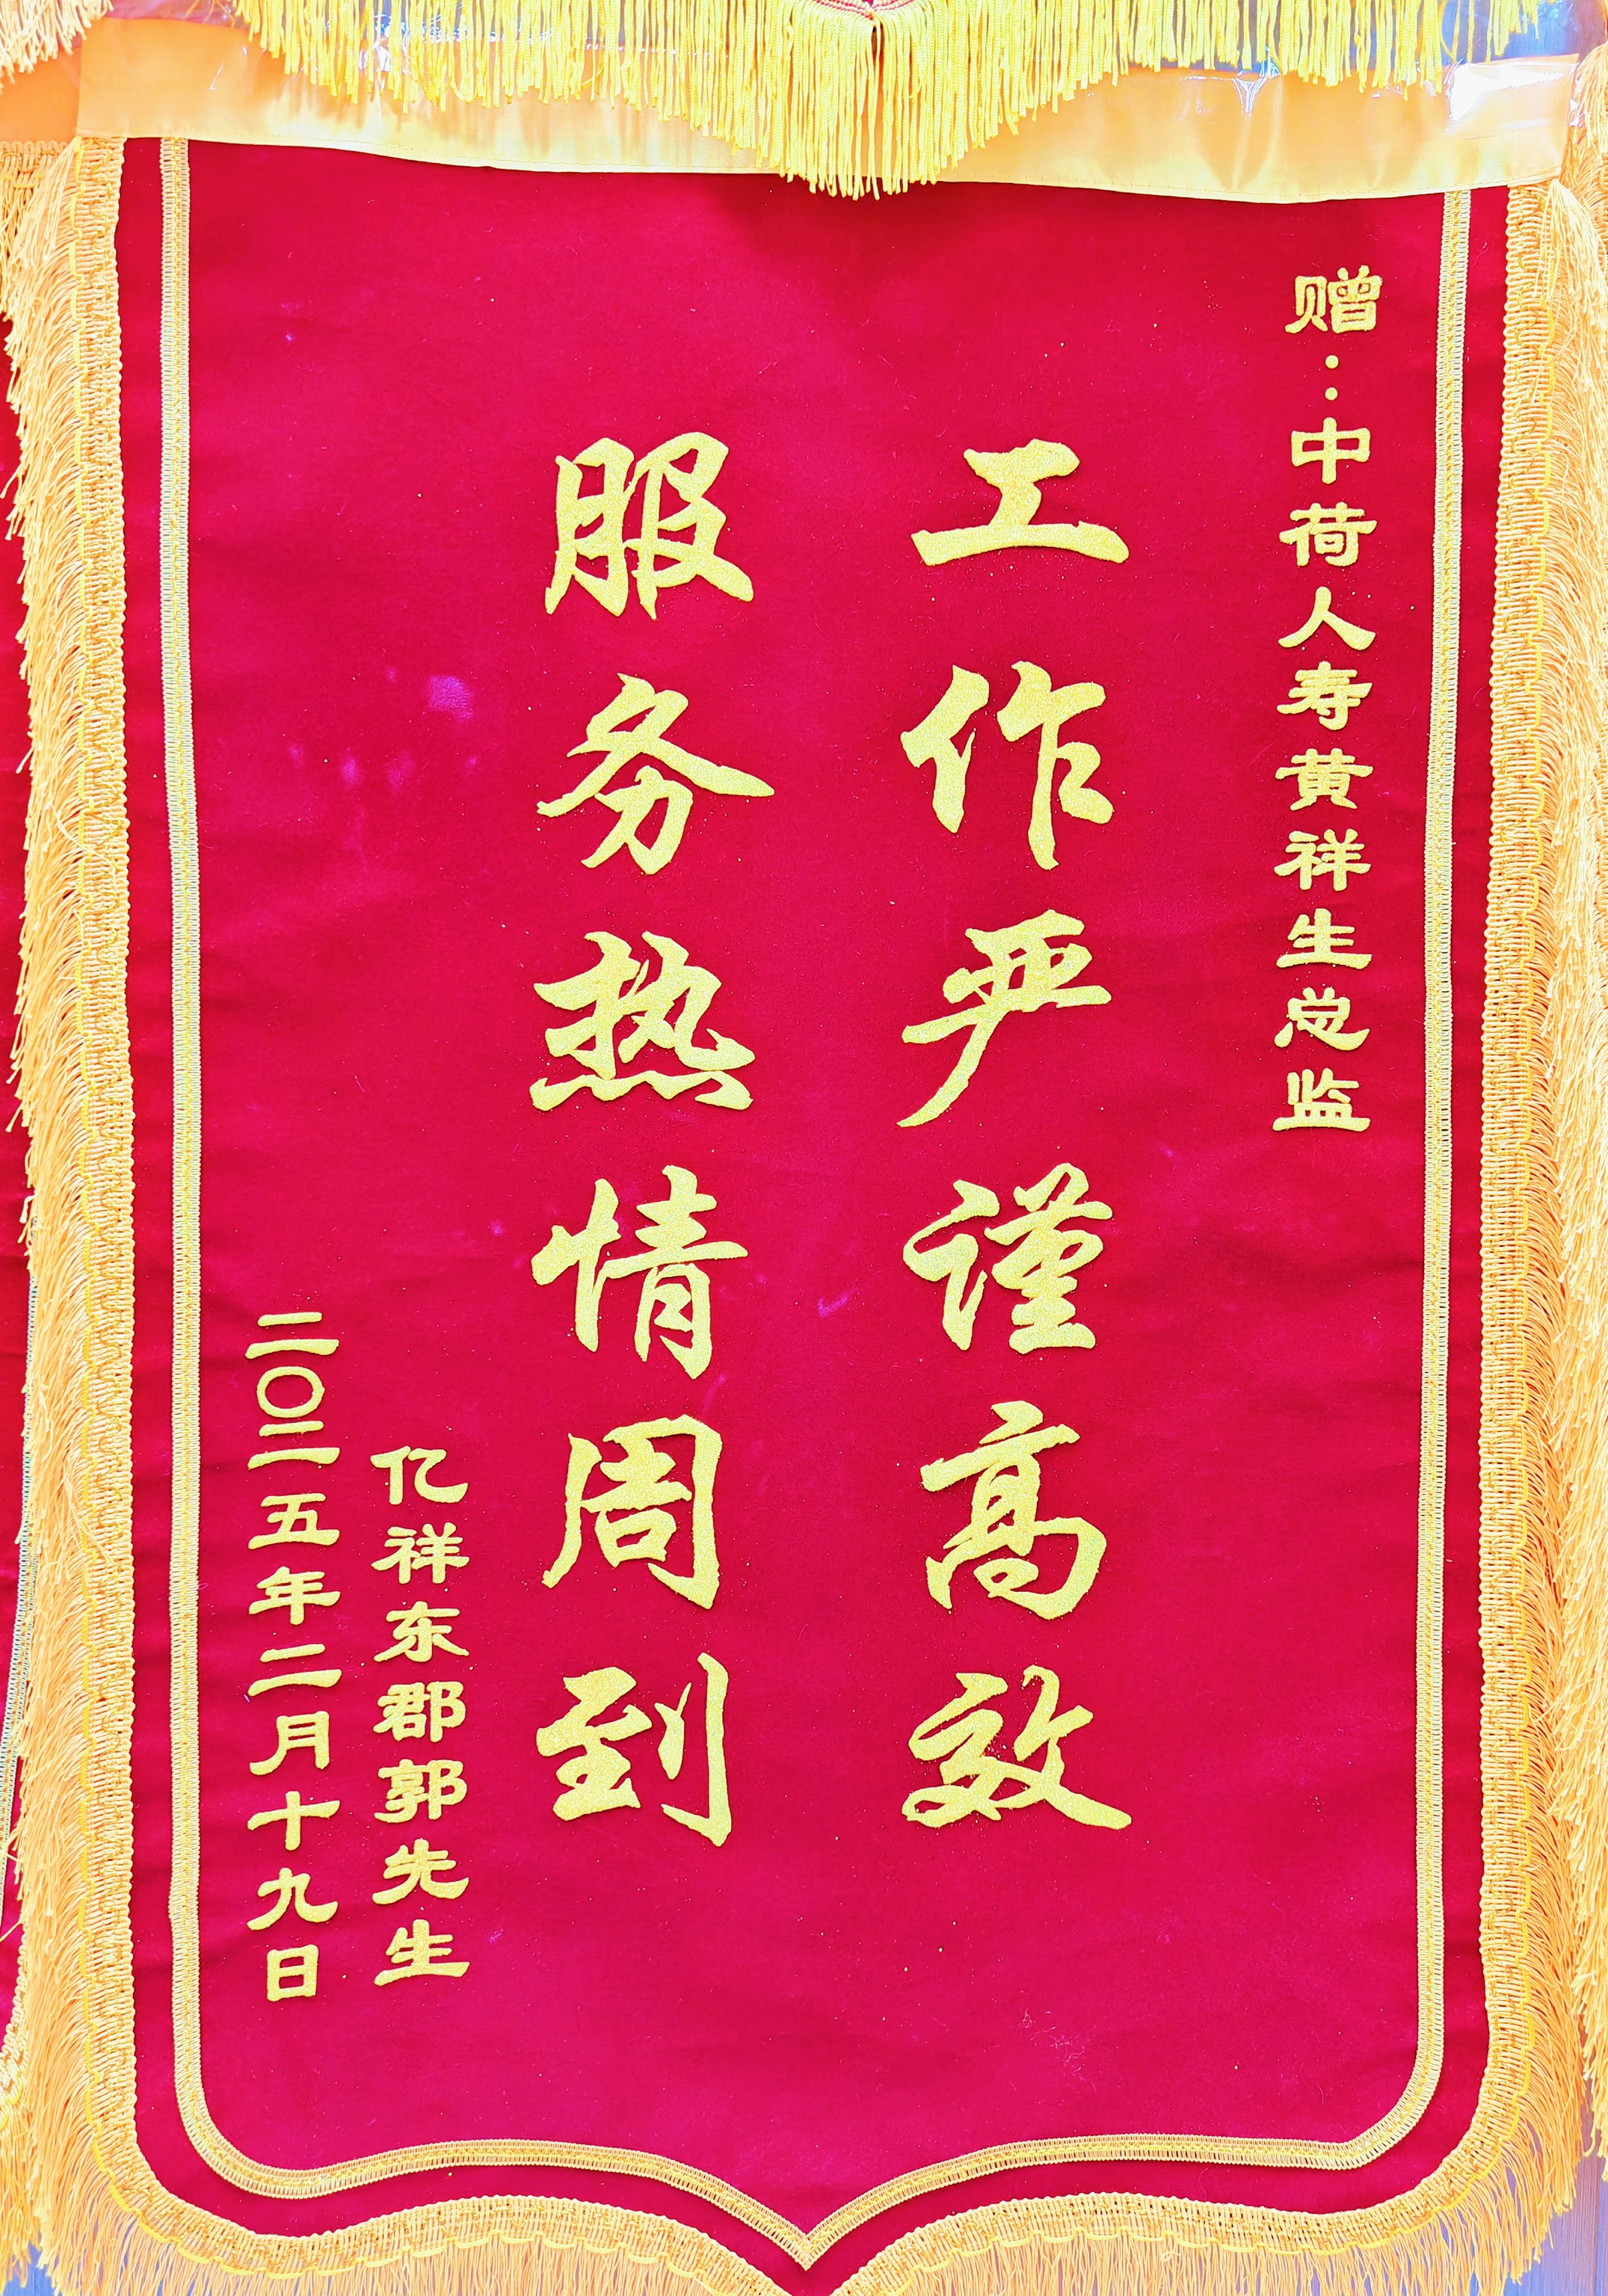 赠：中荷人寿黄祥生总监
工作严谨高效
服务热情周到
亿祥东郡郭先生
二〇二五年二月十九日